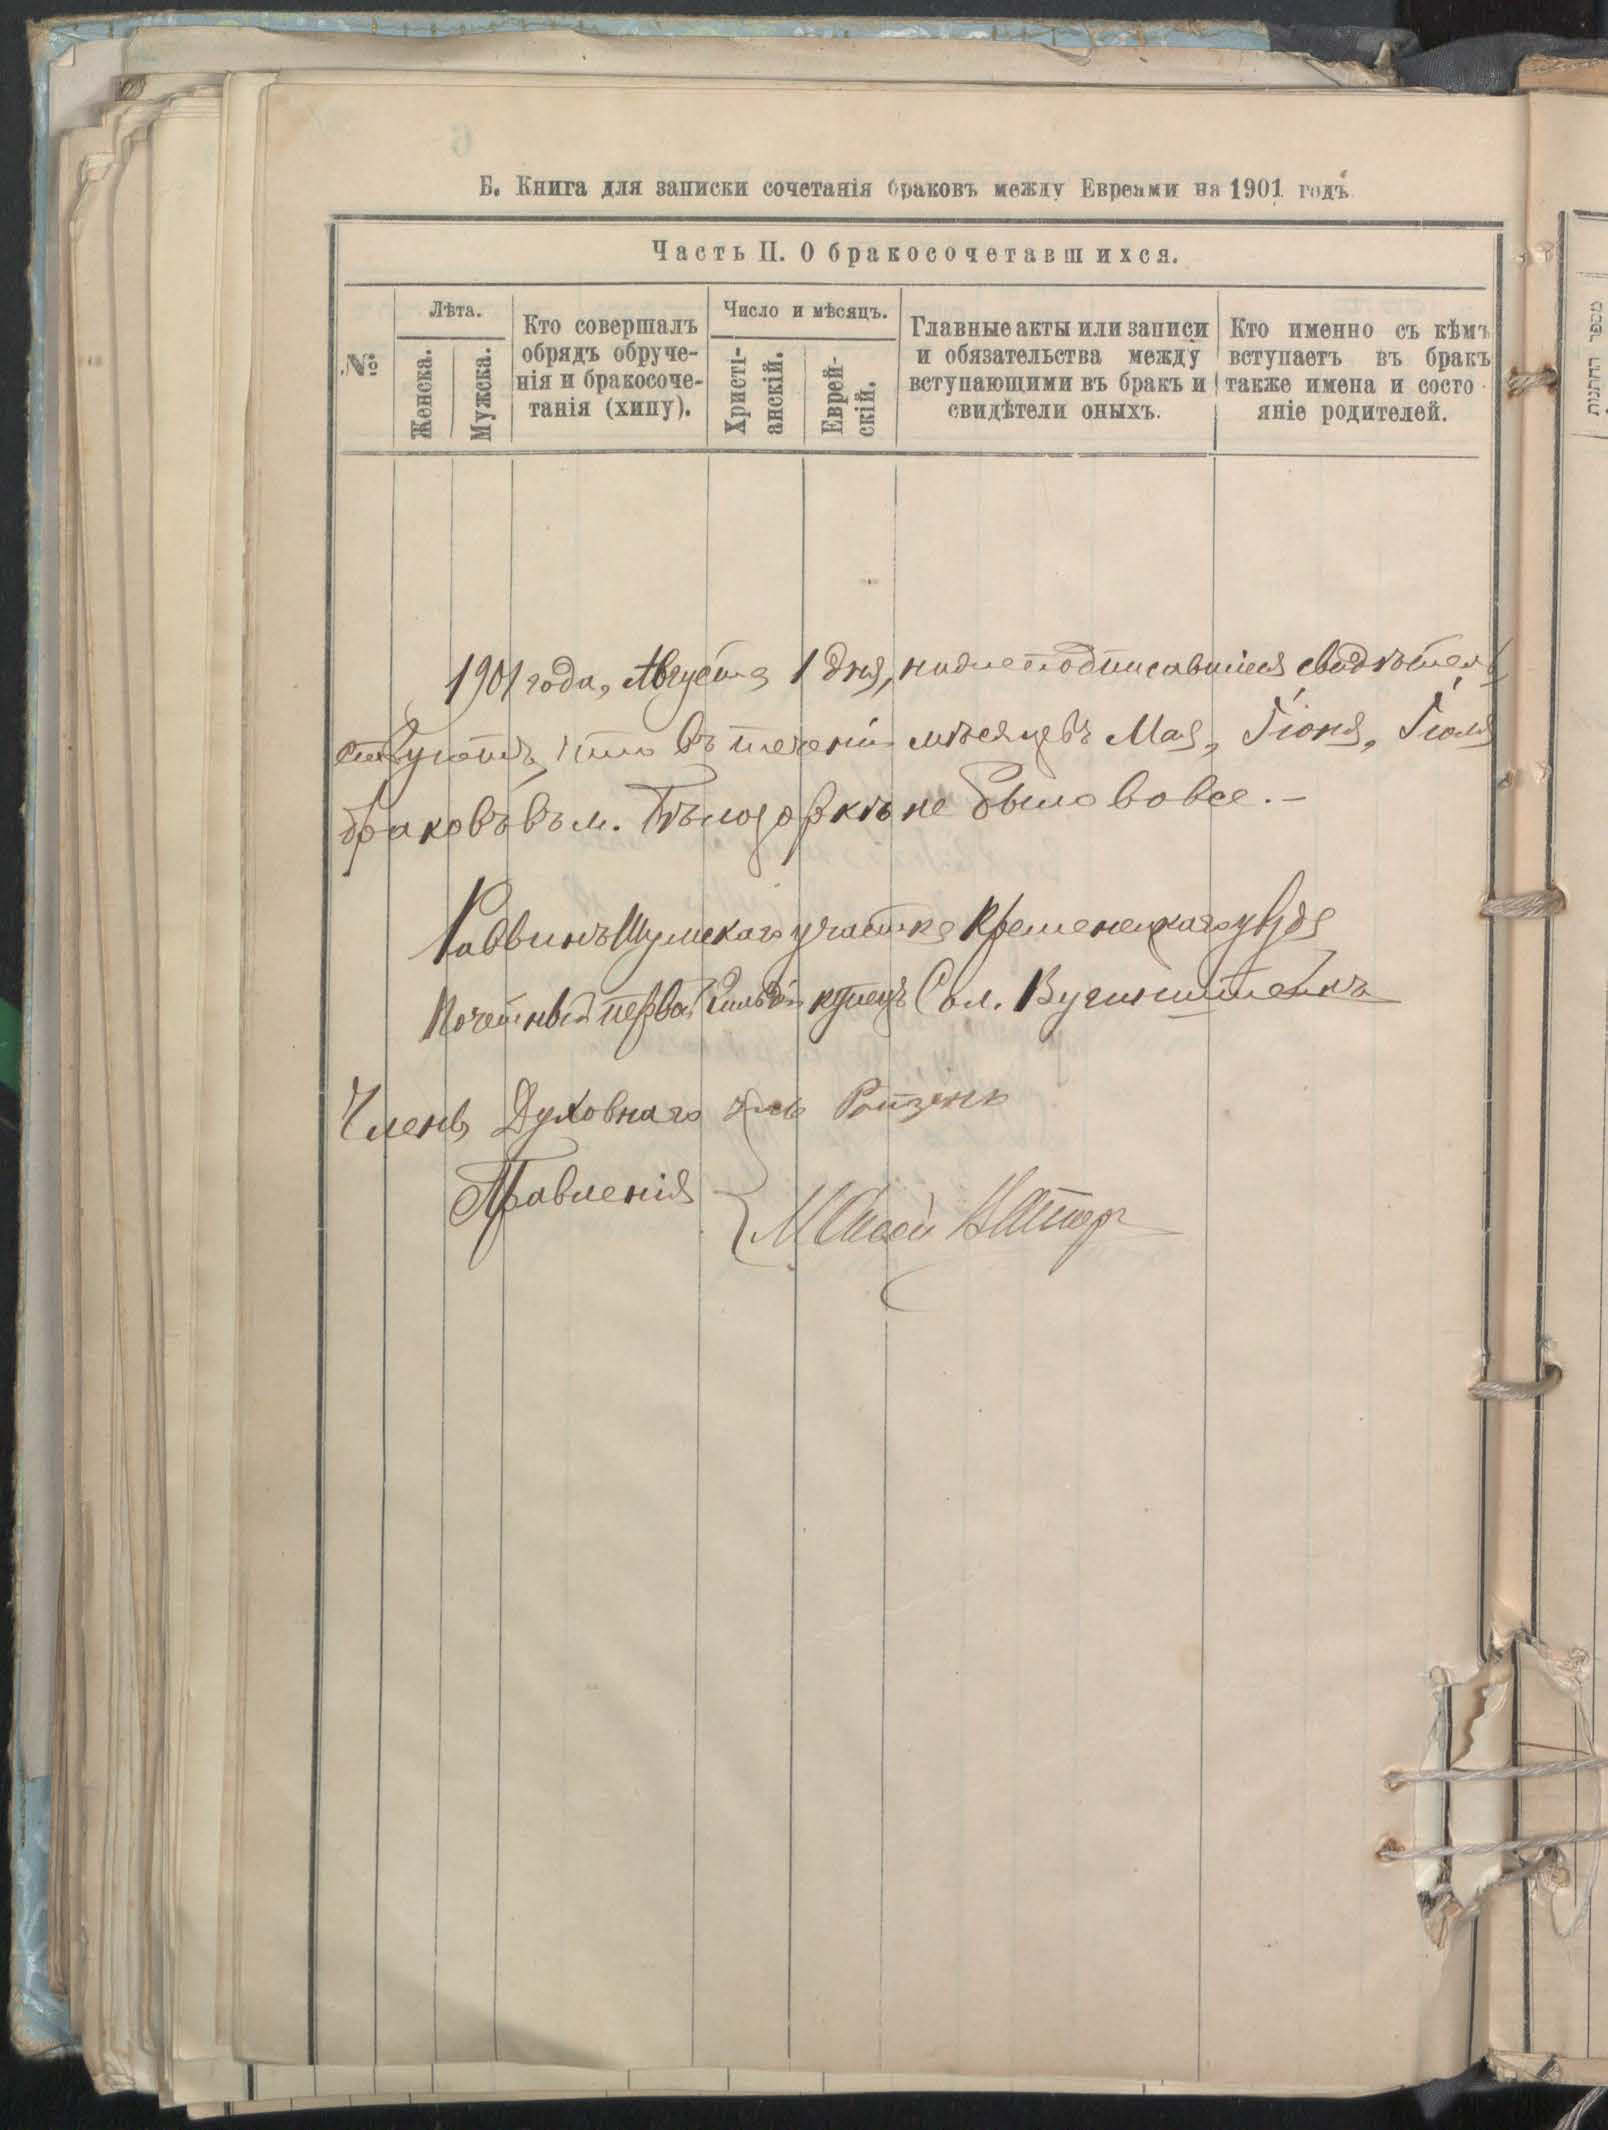 Б. Книга для записки сочетанія браковъ между Евреами на 1901 годъ
Часть II. О бракосочетавшихся.
№
Лѣта.
Женска.
Мужска.
Кто совершалъ
обрядъ обруче-
нія и бракосоче-
танія (хипу).
Число и мѣсяцъ.
Христі-
анскій.
Еврей-
скій.
Главные акты или записи
и обязательства между
вступающими въ бракъ и
свидѣтели оныхъ.
Кто именно съ кѣмъ
вступаетъ въ бракъ
также имена и состо-
яніе родителей.
1901 года, Августа 1 дня, нижеподписавшіеся свидѣтель
ствуютъ, что въ теченіи мѣсяцевъ Мая, Іюня, Іюля
браковъ въ м. Бѣлозоркѣ не было вовсе. –
Раввинъ Шумскаго участка Кременецкаго уѣзда
Почетный первой гильдіи купецъ Сол.
Члены Духовнаго
Правленія
מספר החתונות